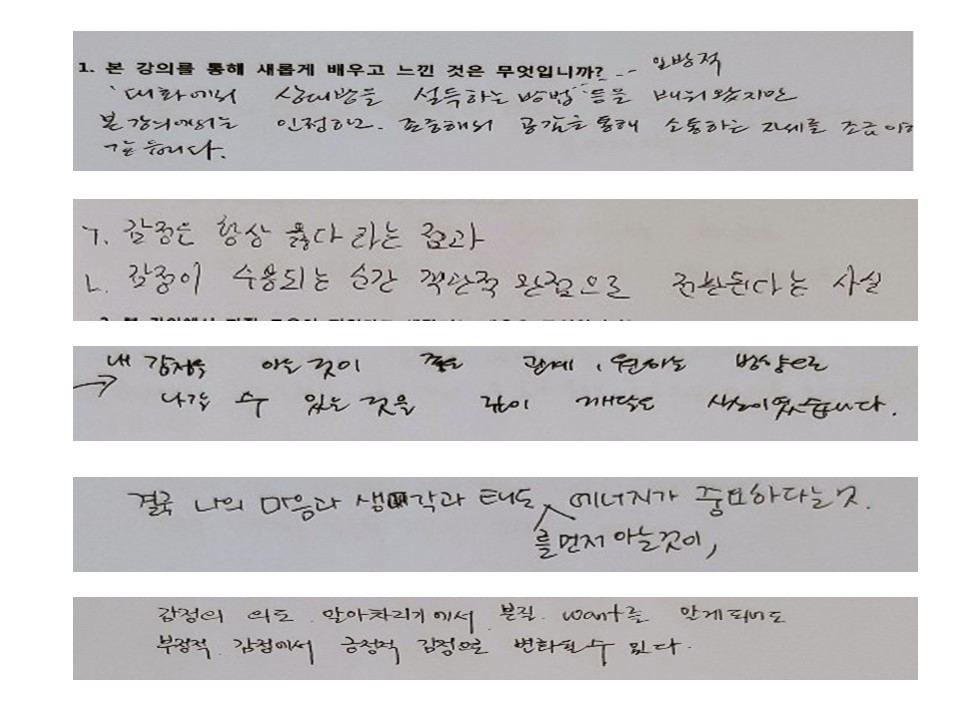 1. 본 강의를 통해 새롭게 배우고 느낀 것은 무엇입니까? -- 일방적
대화에서 상대방을 설득하는 방법 등을 배워왔지만
본 강의에서는 인정하고. 존중해서 공감을 통해 소통하는 자세를 조금 이해
습니다.
ㄱ. 감정은 항상 옳다 라는 점과
ㄴ. 감정이 수용되는 순간 객관적 관점으로 전환된다는 사실
내 감정을 아는 것이 관계, 원하는 방향으로
나갈 수 있는 것을 깊이 깨달은 시간이었습니다.
결국 나의 마음과 생각과 태도 에너지가 중요하다는 것.
를 먼저 아는것이,
감정의 의도 알아차리기에서 본질 want를 알게되어도
부정적 감정에서 긍정적 감정으로 변화될 수 있다.